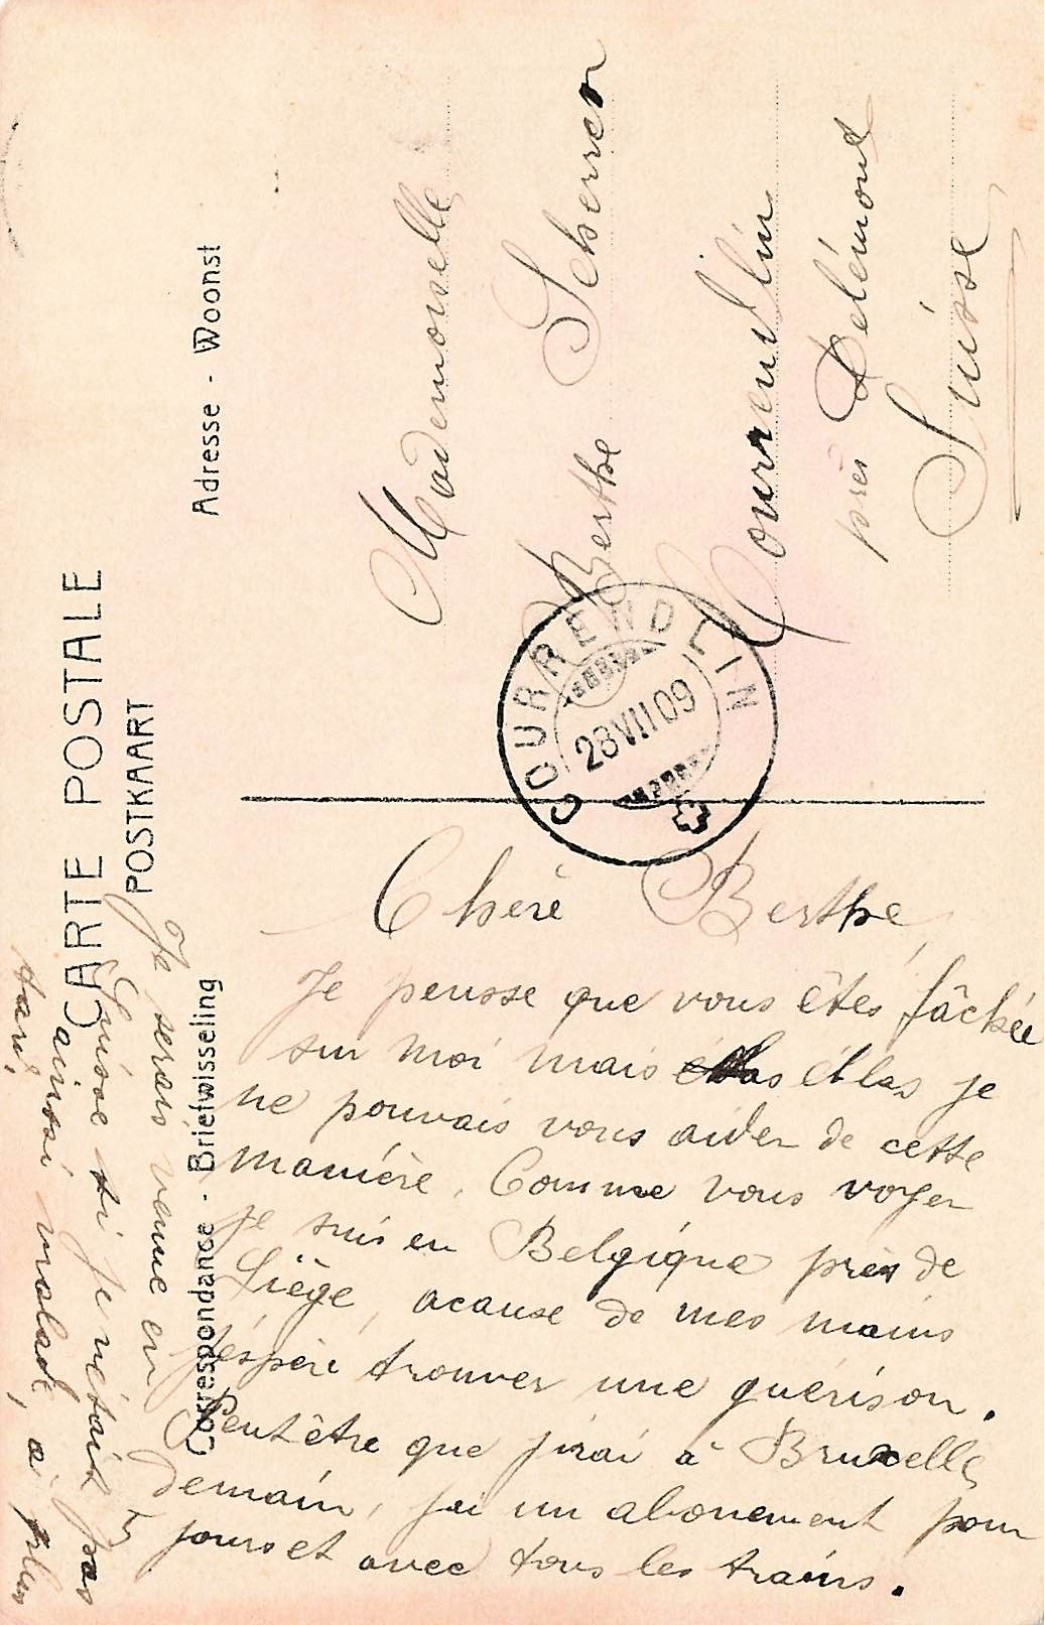 CARTE POSTALE
POSTKAART
Correspondance - Briefwisseling
Adresse - Woonst
Mademoiselle
Berthe Scherrer
Courrendlin
près Delémont
Suisse
COURRENDLIN
28 VII 09
Chère Berthe,
Je pensse que vous êtes fâchée
sur moi mais éllas je
ne pouvais vous aider de cette
manière. Comme vous voyer
je suis en Belgique près de
Liège, acause de mes mains
j'éspère trouver une guérison.
Peut être que jirai à Bruxelle
demain, jai un abonement pour
5 jours et avec tous les trains.
Je serais venue en
Suisse si je nétais pas
ainssi malade, a plus
tard.